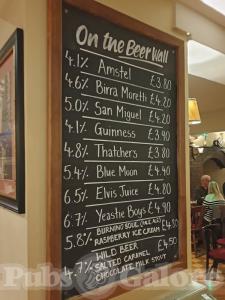 On the Beer Wall
4.1% Amstel £3.80
4.6% Birra Moretti £4.20
5.0% San Miguel £4.20
4.1% Guinness £3.90
4.8% Thatchers £3.80
5.4% Blue Moon £4.40
6.5% Elvis Juice £4.80
6.7% Yeastie Boys £4.90
5.8% BURNING SOUL (PALE ALE) £4.50
RASPBERRY ICE CREAM
4.7% WILD BEER £4.50
SALTED CARAMEL
CHOCOLATE MILK STOUT
Pubs Galore